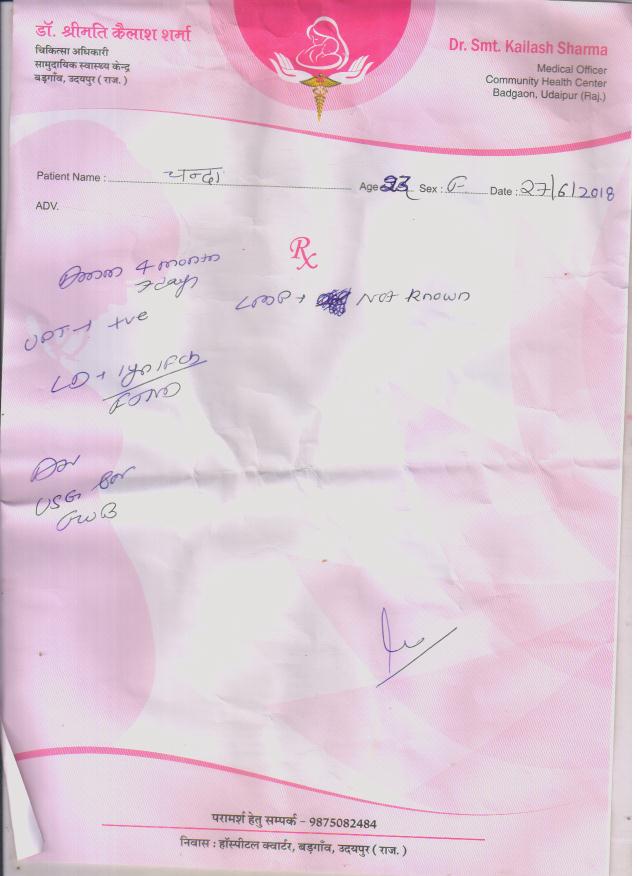 डॉ. श्रीमति कैलाश शर्मा
चिकित्सा अधिकारी
सामुदायिक स्वास्थ्य केन्द्र
बड़गाँव, उदयपुर ( राज. )
Dr. Smt. Kailash Sharma
Medical Officer
Community Health Center
Badgaon, Udaipur (Raj.)
Patient Name : चन्दा Age 23 Sex : F Date : 27/6/2018
ADV.
Rx
4 month
7days
LMP → Not Known
UPT → +ve
LD →
FTND
Adv
USG for
FWB
परामर्श हेतु सम्पर्क - 9875082484
निवास : हॉस्पीटल क्वार्टर, बड़गाँव, उदयपुर ( राज. )